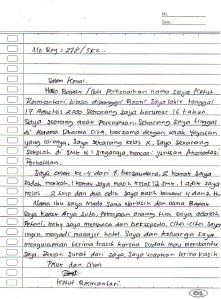 No.
Date:
No Reg : 278/SKC.
Salam Kenal.
Halo Bapak/Ibu Perkenalkan nama saya Ketut
Rosmantari, biasa dipanggil Rosmi. Saya lahir tanggal
17 Agustus 2000 sekarang saya berumur 16 tahun.
Saya seorang anak perempuan. Sekarang saya tinggal
di Asrama Dharma Cita, bersama dengan anak yayasan
yang lainnya. Saya sekarang kelas X, saya sekarang
sekolah di SMK N 1 Singaraja, mencari jurusan Akomodasi
Perhotelan.
Saya anak ke-4 dari 7 bersaudara, 2 kakak saya
sudah menikah, kakak saya masih kelas 12 SMK, 1 adik saya
kelas 2 SMP dan dua adik saya masih berumur 4 dan th
Nama ibu saya Made Suka Kariasih dan nama Bapak
saya Kadek Arya Suta. Pekerjaan orang tua saya adalah
Petani, hoby saya membaca dan bersepeda, cita-cita saya
ingin menjadi manajer hotel. Saya dan keluarga saya
mengucapkan terima kasih karena sudah mau membantu
saya. Sekian surat dari saya, saya ucapkan terima kasih
Peluk dan Cium
Ketut Rosmantari.